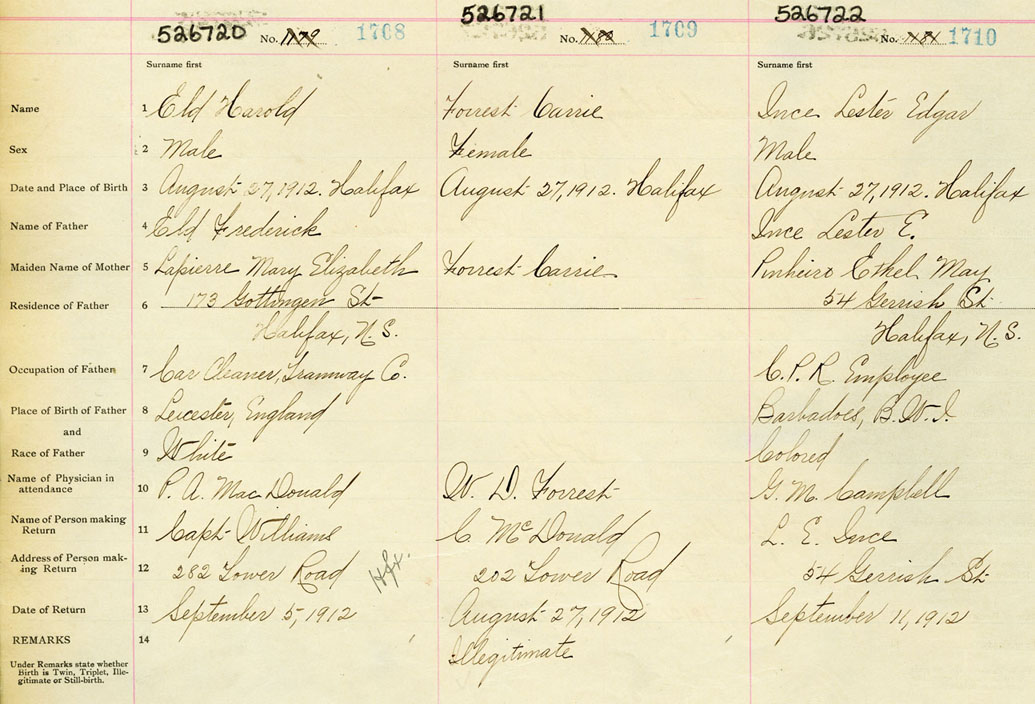 526720 No. 1179 1708
526721 No. 1180 1709
526722 No. 1181 1710
Surname first Surname first Surname first
Name 1 Eld Harold Forrest Carrie Ince Lester Edgar
Sex 2 Male Female Male
Date and Place of Birth 3 August 27, 1912. Halifax August 27, 1912. Halifax August 27, 1912. Halifax
Name of Father 4 Eld Frederick Ince Lester E.
Maiden Name of Mother 5 Lapierre Mary Elizabeth Forrest Carrie Pinheiro Ethel May
Residence of Father 6 173 Gottingen St 54 Gerrish St
Halifax, N.S. Halifax, N.S.
Occupation of Father 7 Car Cleaner, Tramway Co. C.P.R. Employee
Place of Birth of Father 8 Leicester, England Barbadoes, B.W.I.
and
Race of Father 9 White Colored
Name of Physician in
attendance 10 P. A. MacDonald W. D. Forrest G. M. Campbell
Name of Person making
Return 11 Capt Williams C McDonald L. E. Ince
Address of Person mak-
ing Return 12 282 Lower Road Hfx. 202 Lower Road 54 Gerrish St
Date of Return 13 September 5, 1912 August 27, 1912 September 11, 1912
REMARKS 14 Illegitimate
Under Remarks state whether
Birth is Twin, Triplet, Ille-
gitimate or Still-birth.